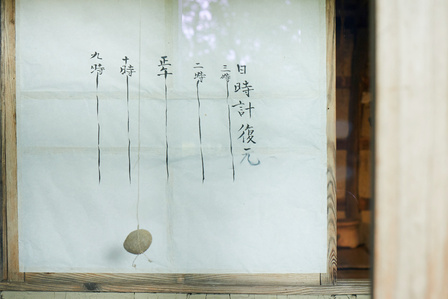 日時計復元
三時
二時
正午
十時
九時